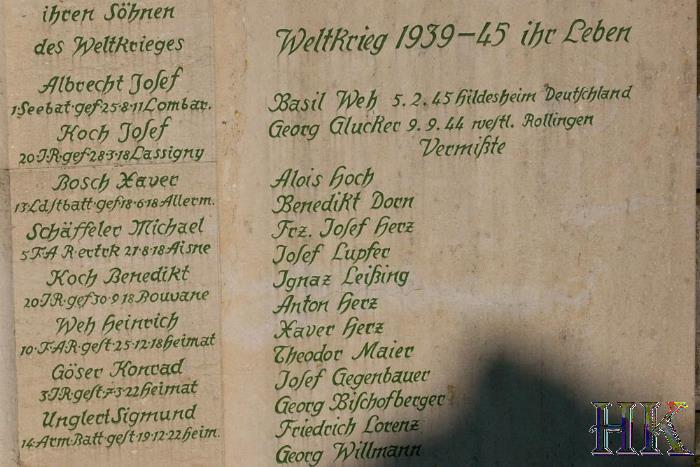 ihren Söhnen
des Weltkrieges
Albrecht Josef
1·Seebat·gef·25·8·11 Lombar.
Koch Josef
20·J·R·gef·28·3·18 Lassigny
Bosch Xaver
13·Ldstbatt·gef·18·6·18 Allerm.
Schäffeler Michael
5·F·A·R·ertrk 21·8·18 Aisne
Koch Benedikt
20·J·R·gef·30·9·18 Bouvane
Weh Heinrich
10·F·A·R·gest·25·12·18 Heimat
Göser Konrad
3·J·R·gest·7·3·22 Heimat
Unglert Sigmund
14·Arm·Batt·gest·19·12·22 Heim.
Weltkrieg 1939–45 ihr Leben
Basil Weh 5. 2. 45 Hildesheim Deutschland
Georg Glucker 9. 9. 44 westl. Rollingen
Vermißte
Alois Hoch
Benedikt Dorn
Frz. Josef Herz
Josef Lupfer
Ignaz Leißing
Anton Herz
Xaver Herz
Theodor Maier
Josef Gegenbauer
Georg Bischofberger
Friedrich Lorenz
Georg Willmann
HK